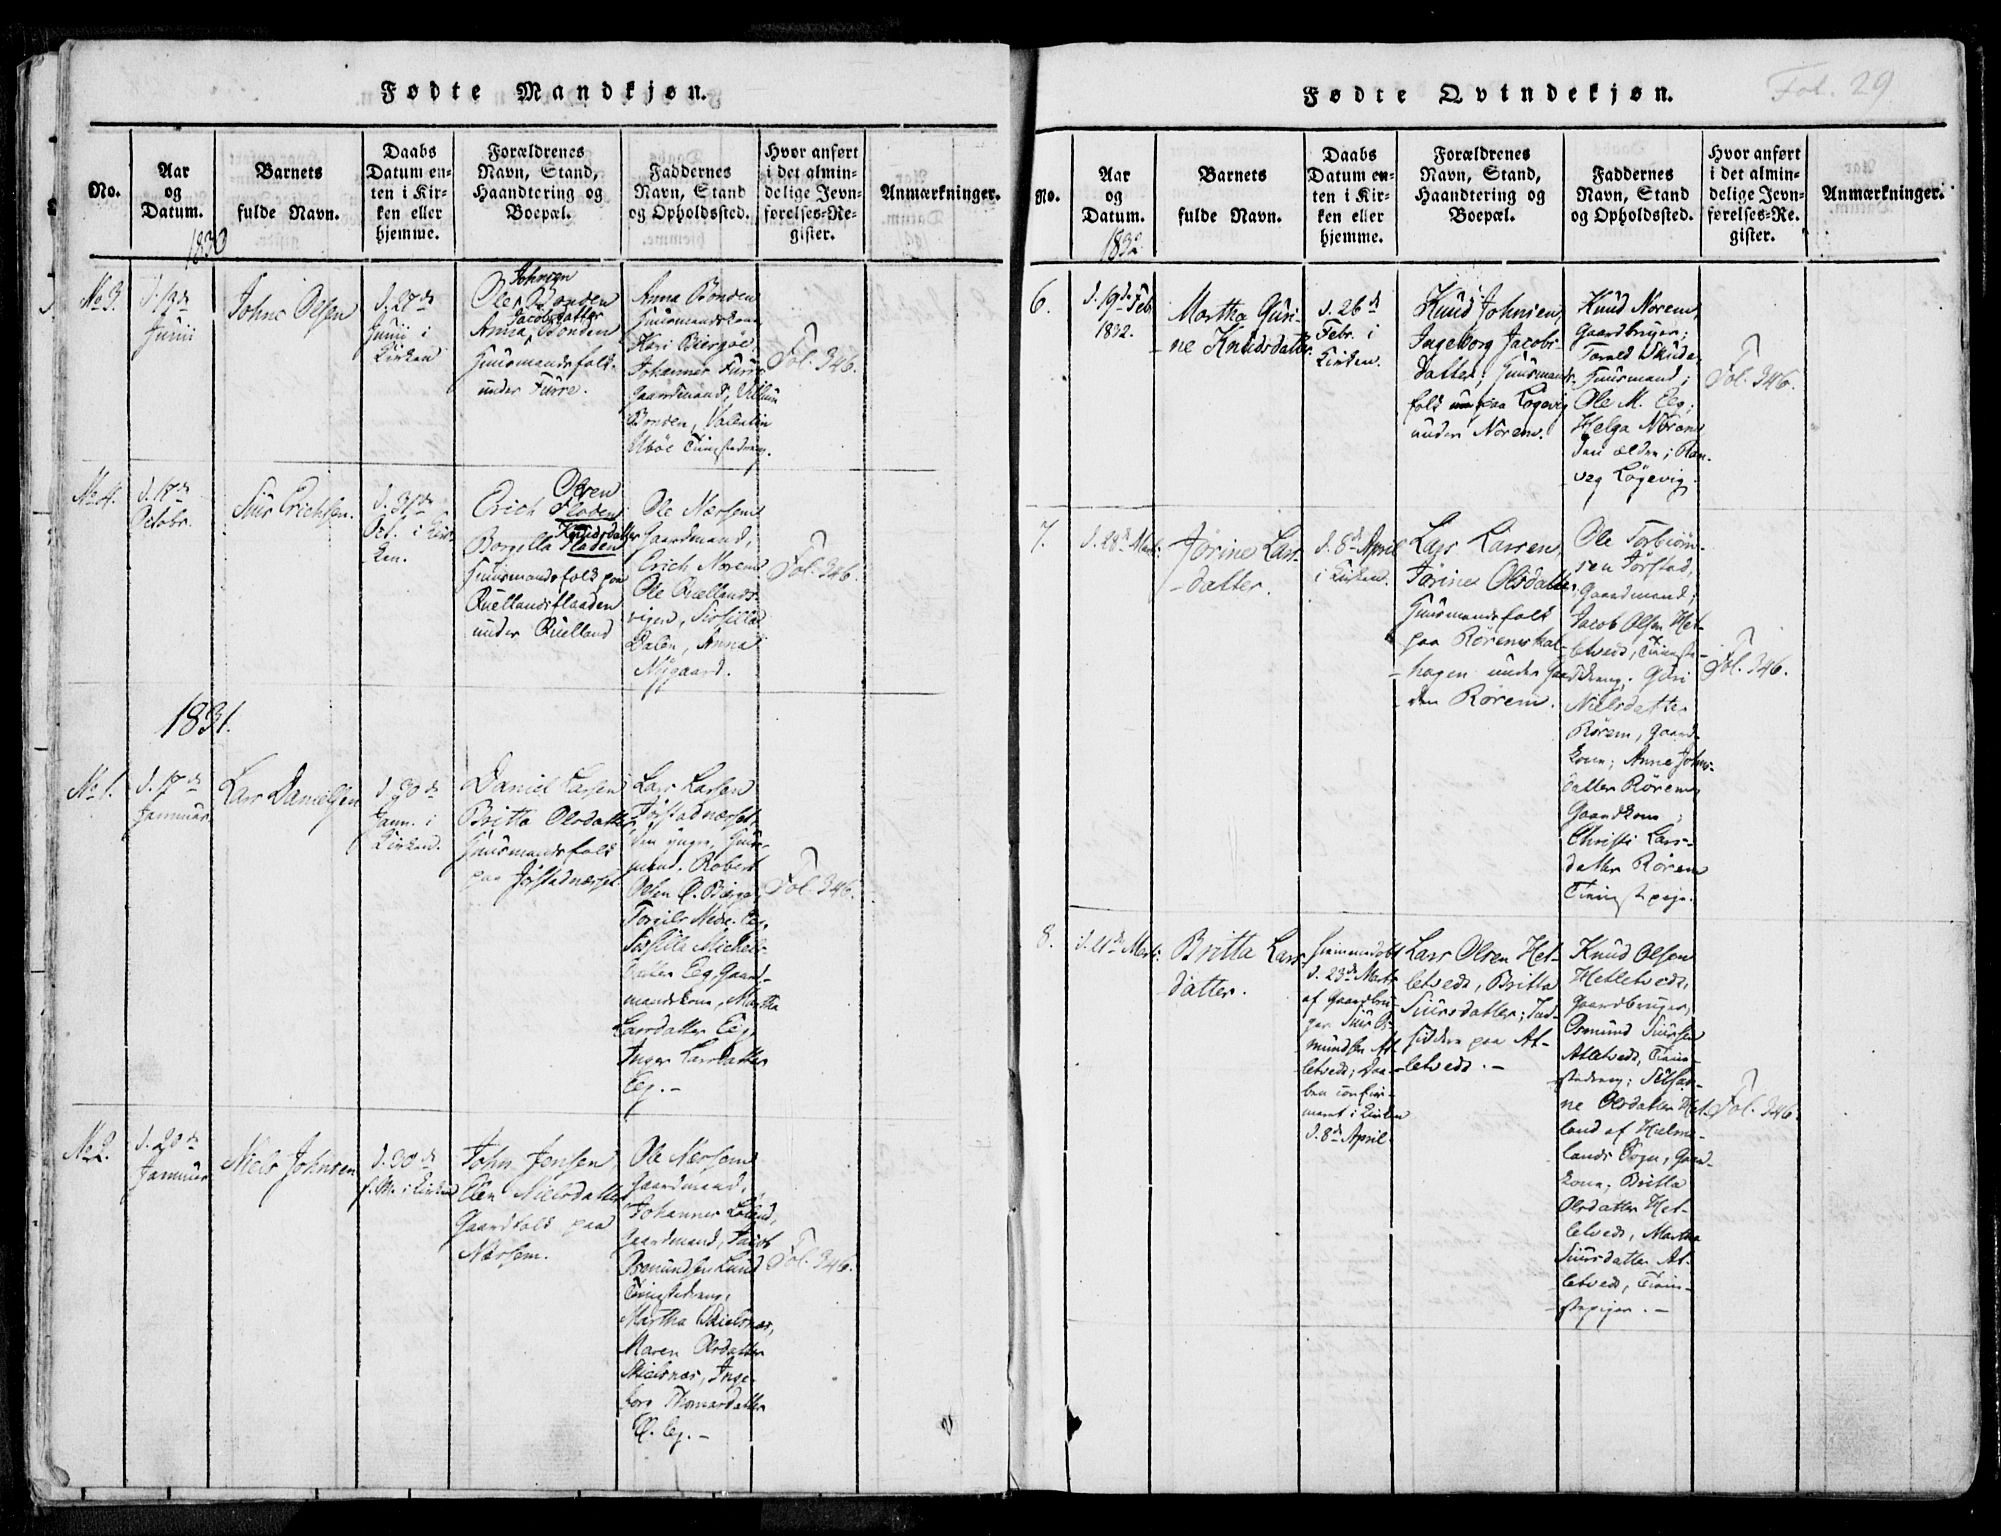 Fødte Mandkjøn.
No.
Aar
og
Datum.
Barnets
fulde Navn.
Daabs
Datum en-
ten i Kir-
ken eller
hjemme.
Forældrenes
Navn, Stand,
Haandtering og
Boepæl.
Faddernes
Navn, Stand
og Opholdssted.
Hvor anført
i det almin-
delige Jevn-
førelses-Re-
gister.
Anmærkninger.
1830
No 3.
d. 19de
Junii
Johns Olsen
d. 27de
Junii i
Kirken
Johnsen
Ole Bonden
Jacobsdatter
Anna Bonden
Huusmandsfolk
under Furre.
Anna Bonden
Huusmandskone
Kari Biergøe
Johannes Furre
Gaardmand, Villum
Bonden, Valentin
Ubøe Tienestedreng.
Fol. 346.
No 4.
d. 17de
Octobr.
Siur Erichsen.
d. 31te
Oct. i Kir-
ken.
Olsen
Erich Floden
Knudsdatter
Borgella Floden
Huusmandsfolk paa
Quellandsflaaden
under Quelland
Ole Nærsem
Gaardmand,
Erich Norem
Ole Quellands-
vigen, Sirsilla
Dalen, Anna
Nygaard.
Fol. 346.
1831.
No 1.
d. 17de
Januar
Lars Danielsen
d. 30de
Janu. i
Kirken.
Daniel Larsen
Britta Olsdatter
Huusmandsfolk
paa Jøstadnæsset
Lars Larsen
Jøstadnæsset,
den yngre, Huus-
mand. Robert
Olsen Ø. Bierge,
Torgils Nedre Eeg,
Sirsille Michels-
datter Eeg Gaard-
mandskone, Martha
Larsdatter Eeg
Inger Larsdatter
Eeg. –
Fol. 346.
No 2.
d. 20de
Januar
Niels Johnsen
d. 30de
f. M. i Kirken
John Jensen
Elen Nielsdatter
Gaardfolk paa
Nærsem.
Ole Nærsem
Gaardmand,
Johannes Løland,
Gaardmand, Jacob
Osmundsen Lund
Tienestedreng,
Martha Skielsnæs,
Maren Olsdatter
Skielsnæs, Inge-
borg Thomasdatter
Ø. Eeg. –
Fol. 346.
Fødte Qvindekjøn.
Fol. 29
No.
Aar
og
Datum.
Barnets
fulde Navn.
Daabs
Datum en-
ten i Kir-
ken eller
hjemme.
Forældrenes
Navn, Stand,
Haandtering og
Boepæl.
Faddernes
Navn, Stand
og Opholdssted.
Hvor anført
i det almin-
delige Jevn-
førelses-Re.
gister.
Anmærkninger.
1832
6.
d. 19de Feb.
1832.
Martha Guri-
ne Knudsdatter.
d. 26de
Febr. i
Kirken.
Knud Johnsen,
Ingeborg Jacobs-
datter; Huusmands-
folk paa Løgevig
under Norem.
Knud Norem
Gaardbruger;
Torald Skude
Huusmand;
Ole M. Eeg;
Helga Norem
den ældre; Ran-
veg Løgevig.
Fol. 346.
7.
d. 28de Marti.
Jorine Lars-
datter.
d. 8de April
i Kirken.
Lars Larsen,
Jorine Olsdatter
Huusmandsfolk
paa Röremskal-
hagen under Gaar-
den Rörem.
Ole Torbiörn-
sen Jörstad,
Gaardmand;
Jacob Olsen Het-
letvedt, Tieneste-
dreng; Guri
Nielsdatter
Rörem, Gaard-
kone; Anna Johns-
datter Rörem,
Gaardkone;
Christi Lars-
datter Rörem
Tienestepige.
Fol. 346.
8.
d. 21de Marti.
Britta Lars-
datter.
Hiemmedøbt
d. 23de Marti
af Gaardbru-
ger Siur Os-
mundsen At-
letvedt; Daa-
ben confir-
meret i Kirken
d. 8de April.
Lars Olsen Het-
letvedt, Britta
Siursdatter; Ind-
siddere paa At-
letvedt. –
Knud Olsen
Hetletvedt,
Gaardbruger,
Osmund Siursen
Atletvedt, Tiene-
stedreng;
ne Olsdatter Het-
land af Hielme-
lands Sogn, Gaard-
kone; Britta
Olsdatter Het-
letvedt, Martha
Siursdatter At-
letvedt, Tiene-
stepiger. –
Fol. 346.